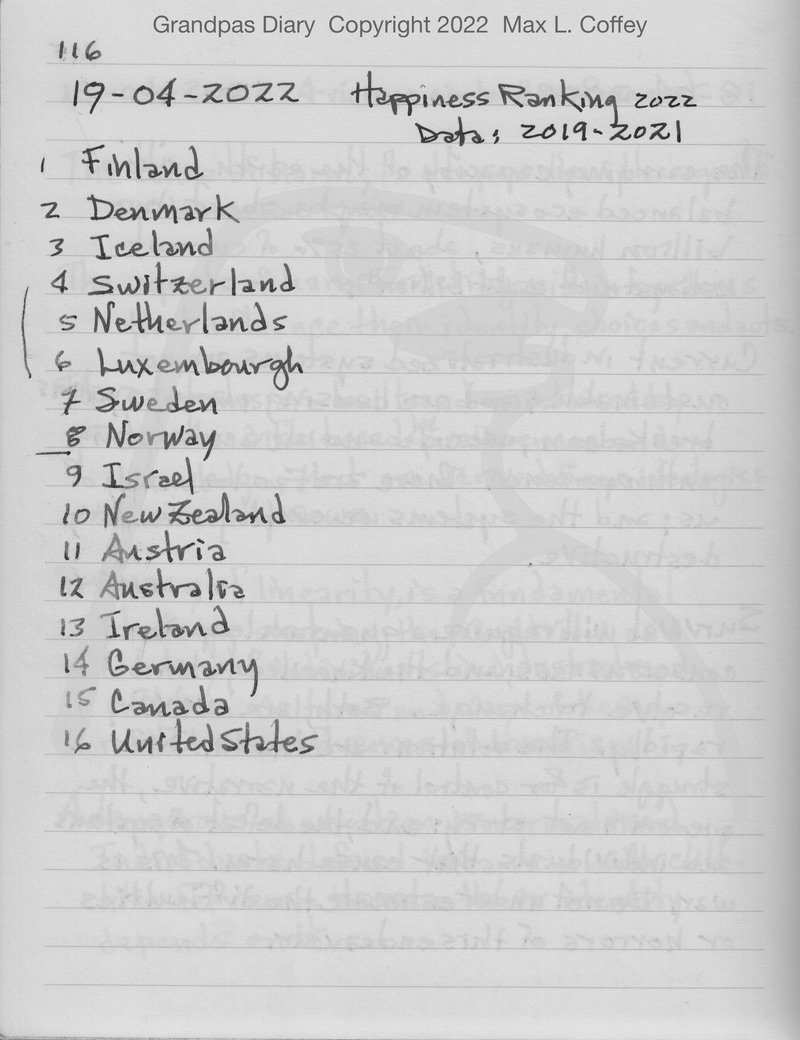 Grandpas Diary Copyright 2022 Max L. Coffey
116
19-04-2022 Happiness Ranking 2022
Data: 2019-2021
1 Finland
2 Denmark
3 Iceland
4 Switzerland
5 Netherlands
6 Luxembourgh
7 Sweden
8 Norway
9 Israel
10 New Zealand
11 Austria
12 Australia
13 Ireland
14 Germany
15 Canada
16 United States